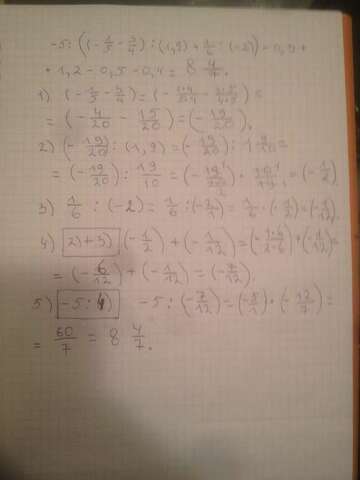 -5 : ((-1/5 - 3/4) : (1,9) + 1/6 : (-2)) - 0,3 +
+ 1,2 - 0,5 - 0,4 = 8 4/7.
1) (-1/5 - 3/4) = (-1·4/5·4 - 3·5/4·5) =
= (-4/20 - 15/20) = (-19/20).
2) (-19/20) : (1,9) = (-19/20) : 1 9/10 =
= (-19/20) : 19/10 = (-19/20) · 10/19 = (-1/2)
3) 1/6 : (-2) = 1/6 : (-2/1) = 1/6 · (-1/2) = (-1/12).
4) 2)+3) (-1/2) + (-1/12) = (-1·6/2·6) + (-1/12) =
= (-6/12) + (-1/12) = (-7/12).
5) -5:4) -5 : (-7/12) = (-5/1) · (-12/7) =
= 60/7 = 8 4/7.